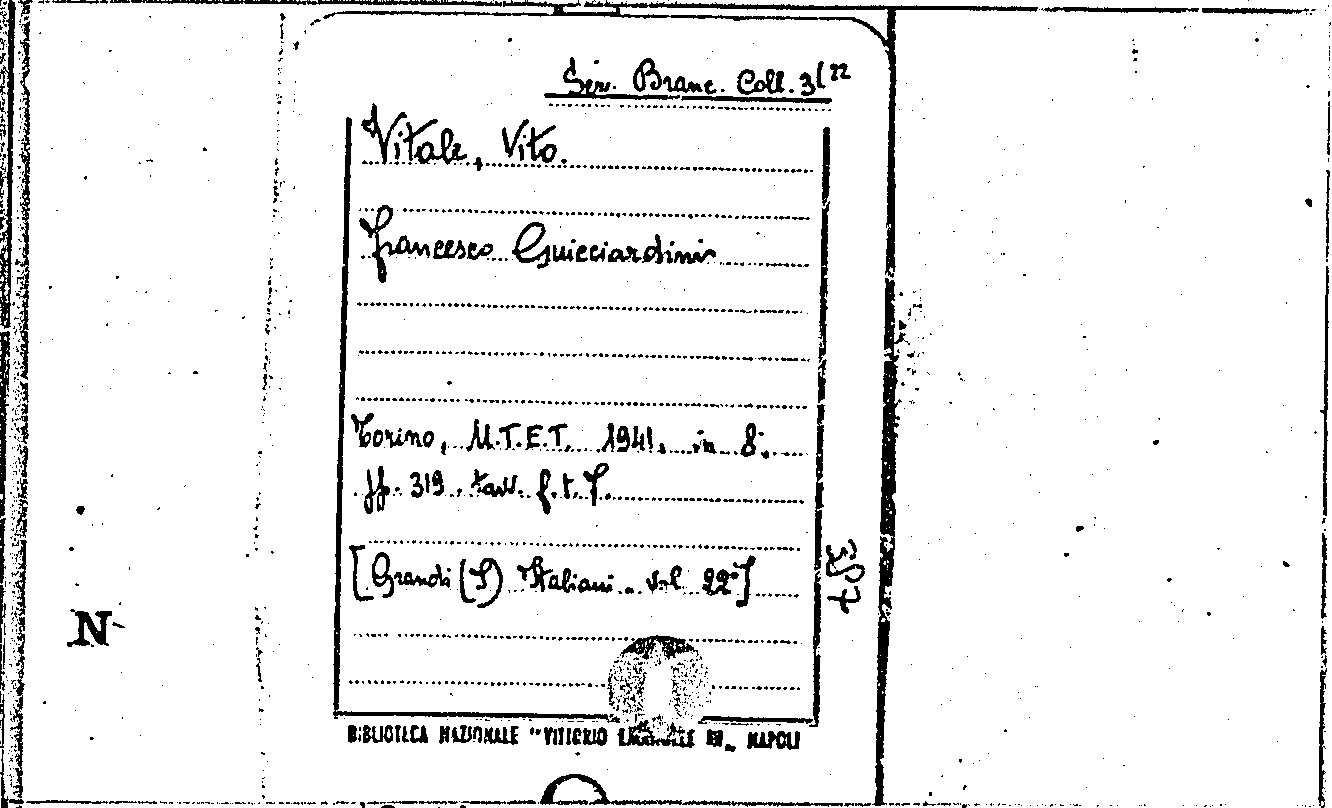 Ser. Branc. Coll. 3(22
Vitale, Vito.
Francesco Guicciardini
Torino, U.T.E.T. 1941, in 8°.
pp. 319. tavv. f. t. I.
[Grandi (I) Italiani. vol. 22°]
N
BIBLIOTECA NAZIONALE "VITTORIO EMANUELE III„ NAPOLI